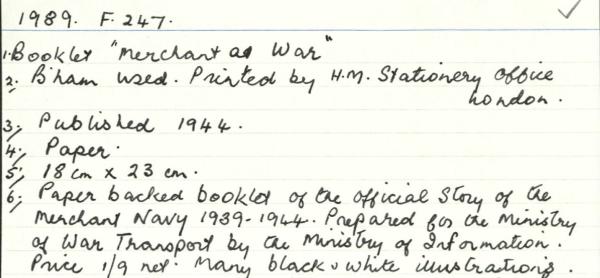 1989. F. 247.
1. Booklet "Merchant at War"
2. B'ham used. Printed by H.M. Stationery Office
London.
3. Published 1944.
4. Paper.
5. 18 cm x 23 cm.
6. Paper backed booklet of the official Story of the
Merchant Navy 1939-1944. Prepared for the Ministry
of War Transport by the Ministry of Information.
Price 1/9 net. Many black & white illustrations.